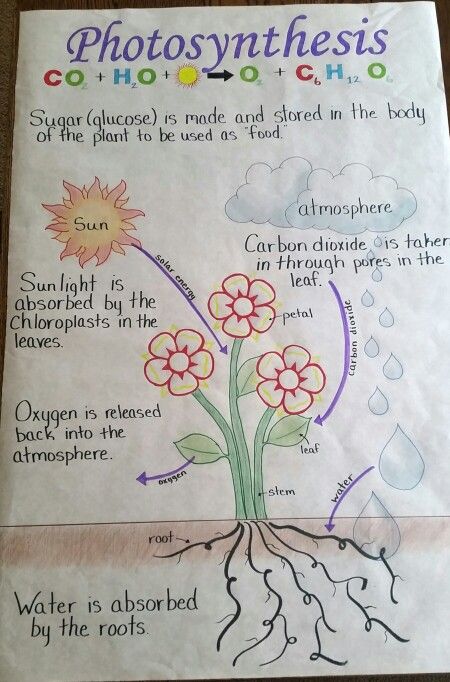 Photosynthesis
CO₂ + H₂O + → O₂ + C₆ H₁₂ O₆
Sugar (glucose) is made and stored in the body
of the plant to be used as "food."
Sun
atmosphere
solar energy
Carbon dioxide is taken
in through pores in the
leaf.
Sunlight is
absorbed by the
Chloroplasts in the
leaves.
petal
carbon dioxide
Oxygen is released
back into the
atmosphere.
leaf
oxygen
stem
water
root
Water is absorbed
by the roots.